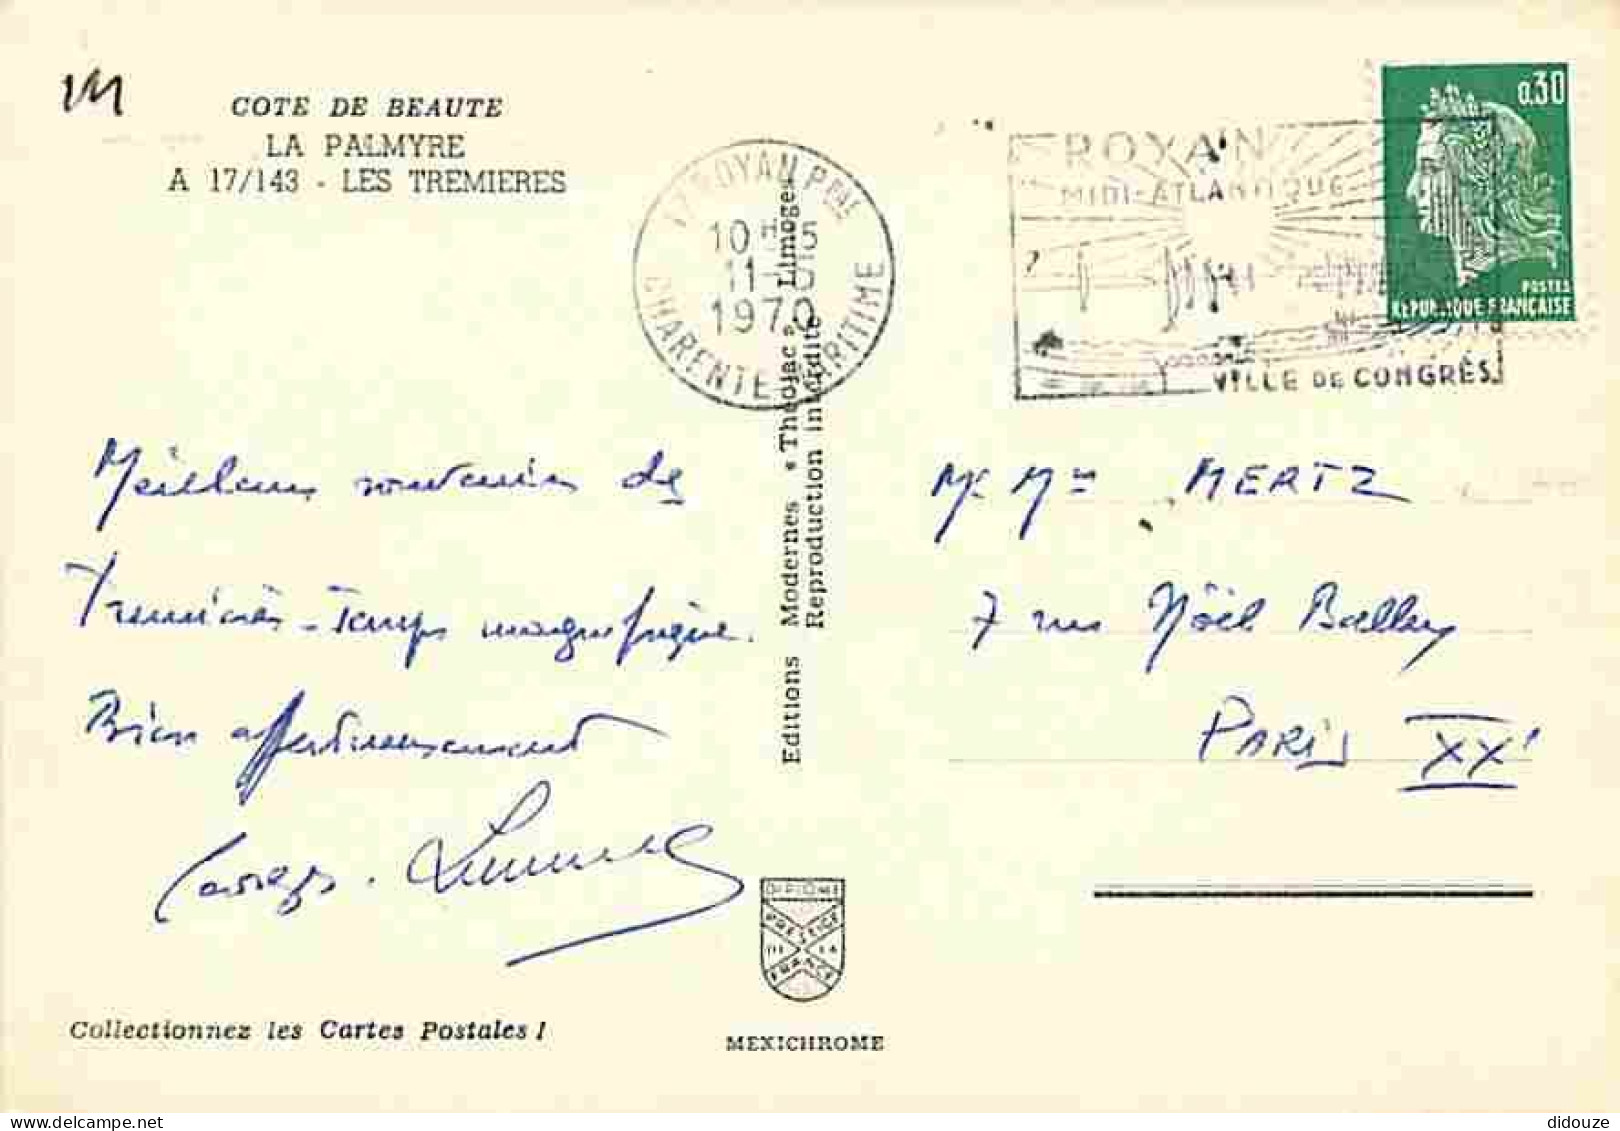 COTE DE BEAUTE
LA PALMYRE
A 17/143 - LES TREMIERES
17 ROYAN Pal
10H15
1970
CHARENTE MARITIME
ROYAN
MIDI-ATLANTIQUE
VILLE DE CONGRÈS
0,30
POSTES
REPUBLIQUE FRANÇAISE
Meilleurs souvenirs de
Trémières - Temps magnifique.
Bien affectueusement
Editions Modernes « Théojac » Limoges
Reproduction interdite
Mr Mme MERTZ
7 rue Nöel Ballay
PARIS XX
DIPLOME
PRESTIGE
DE LA
FRANCE
Collectionnez les Cartes Postales !
MEXICHROME
delcampe.net
didouze